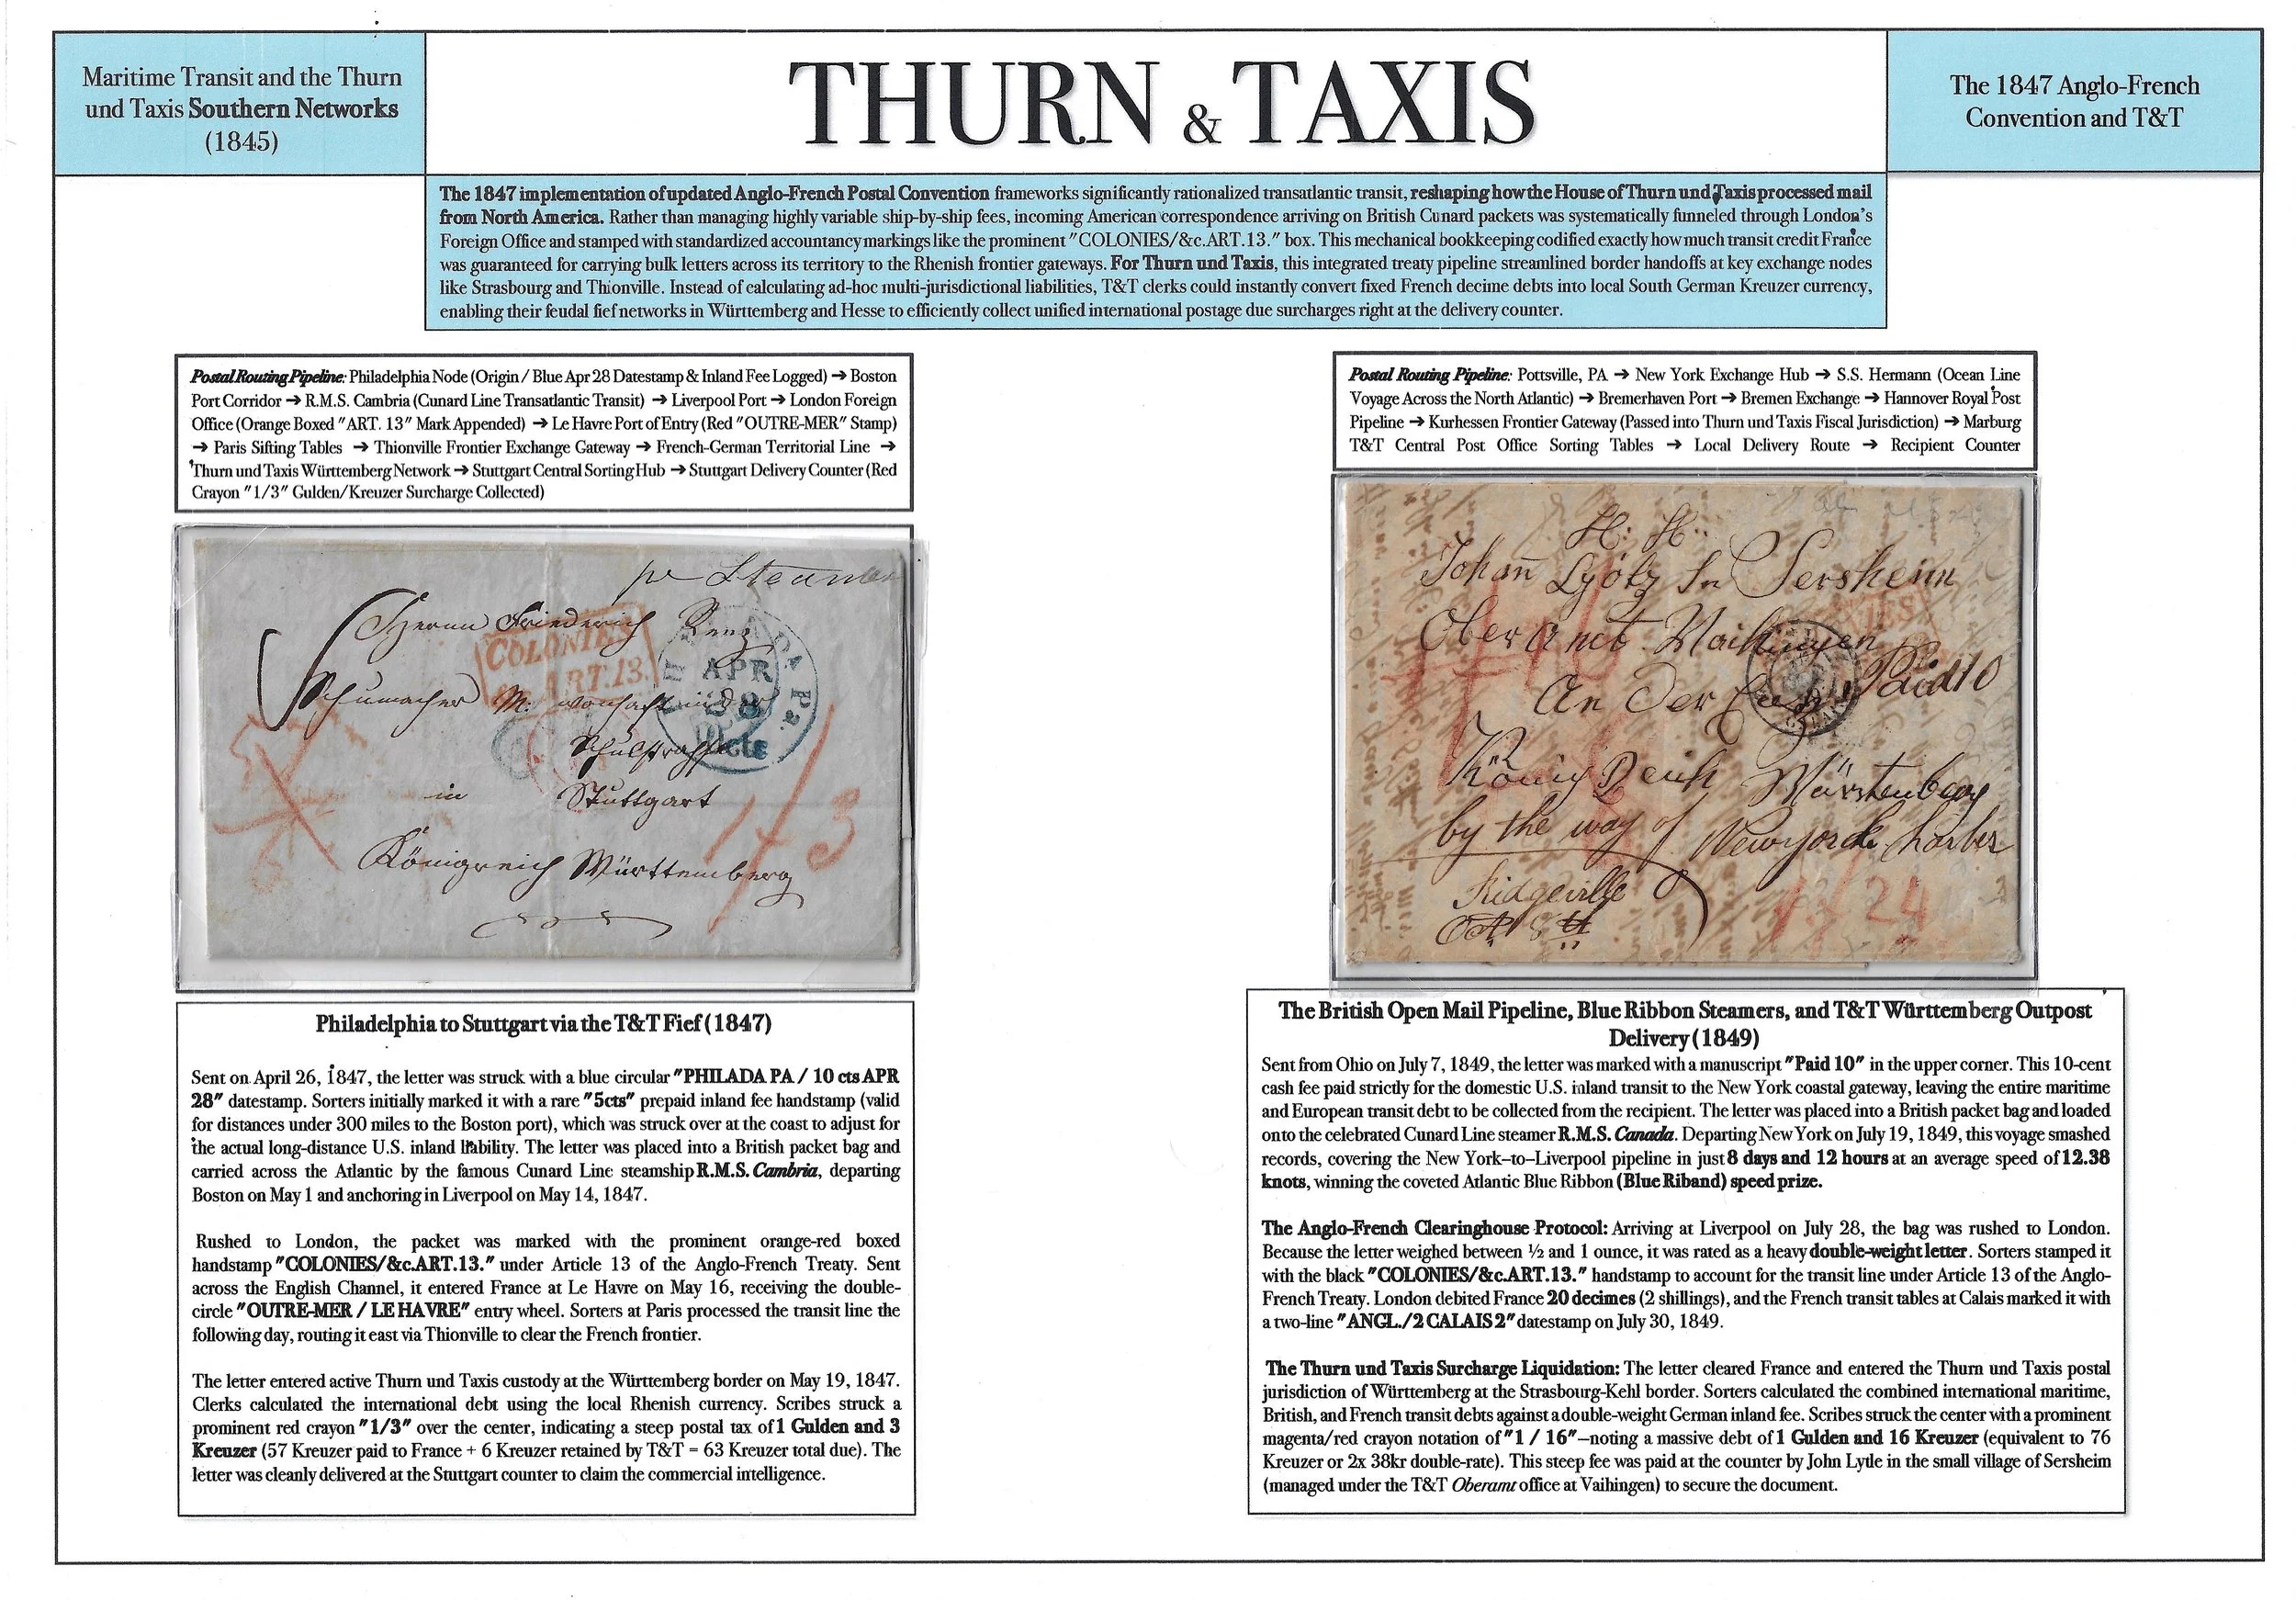 Maritime Transit and the Thurn
und Taxis Southern Networks
(1845)
THURN & TAXIS
The 1847 Anglo-French
Convention and T&T
The 1847 implementation of updated Anglo-French Postal Convention frameworks significantly rationalized transatlantic transit, reshaping how the House of Thurn und Taxis processed mail
from North America. Rather than managing highly variable ship-by-ship fees, incoming American correspondence arriving on British Cunard packets was systematically funneled through London's
Foreign Office and stamped with standardized accountancy markings like the prominent "COLONIES/&c.ART.13." box. This mechanical bookkeeping codified exactly how much transit credit France
was guaranteed for carrying bulk letters across its territory to the Rhenish frontier gateways. For Thurn und Taxis, this integrated treaty pipeline streamlined border handoffs at key exchange nodes
like Strasbourg and Thionville. Instead of calculating ad-hoc multi-jurisdictional liabilities, T&T clerks could instantly convert fixed French decime debts into local South German Kreuzer currency,
enabling their feudal fief networks in Württemberg and Hesse to efficiently collect unified international postage due surcharges right at the delivery counter.
Postal Routing Pipeline: Philadelphia Node (Origin / Blue Apr 28 Datestamp & Inland Fee Logged) → Boston
Port Corridor → R.M.S. Cambria (Cunard Line Transatlantic Transit) → Liverpool Port → London Foreign
Office (Orange Boxed "ART. 13" Mark Appended) → Le Havre Port of Entry (Red "OUTRE-MER" Stamp)
→ Paris Sifting Tables → Thionville Frontier Exchange Gateway → French-German Territorial Line →
Thurn und Taxis Württemberg Network → Stuttgart Central Sorting Hub → Stuttgart Delivery Counter (Red
Crayon "1/3" Gulden/Kreuzer Surcharge Collected)
pr Steamer
Herrn Friederich Renz
COLONIES
ART.13.
APR
28
Pa.
10cts
Schumacher M: wonhaft in der
Schulstrasse
in Stuttgart
Königreich Württemberg
1/3
Philadelphia to Stuttgart via the T&T Fief (1847)
Sent on April 26, 1847, the letter was struck with a blue circular "PHILADA PA / 10 cts APR
28" datestamp. Sorters initially marked it with a rare "5cts" prepaid inland fee handstamp (valid
for distances under 300 miles to the Boston port), which was struck over at the coast to adjust for
the actual long-distance U.S. inland liability. The letter was placed into a British packet bag and
carried across the Atlantic by the famous Cunard Line steamship R.M.S. Cambria, departing
Boston on May 1 and anchoring in Liverpool on May 14, 1847.
Rushed to London, the packet was marked with the prominent orange-red boxed
handstamp "COLONIES/&c.ART.13." under Article 13 of the Anglo-French Treaty. Sent
across the English Channel, it entered France at Le Havre on May 16, receiving the double-
circle "OUTRE-MER / LE HAVRE" entry wheel. Sorters at Paris processed the transit line the
following day, routing it east via Thionville to clear the French frontier.
The letter entered active Thurn und Taxis custody at the Württemberg border on May 19, 1847.
Clerks calculated the international debt using the local Rhenish currency. Scribes struck a
prominent red crayon "1/3" over the center, indicating a steep postal tax of 1 Gulden and 3
Kreuzer (57 Kreuzer paid to France + 6 Kreuzer retained by T&T = 63 Kreuzer total due). The
letter was cleanly delivered at the Stuttgart counter to claim the commercial intelligence.
Postal Routing Pipeline: Pottsville, PA → New York Exchange Hub → S.S. Hermann (Ocean Line
Voyage Across the North Atlantic) → Bremerhaven Port → Bremen Exchange → Hannover Royal Post
Pipeline → Kurhessen Frontier Gateway (Passed into Thurn und Taxis Fiscal Jurisdiction) → Marburg
T&T Central Post Office Sorting Tables → Local Delivery Route → Recipient Counter
H: H:
Johan Sersheim
Ober amt
Paid 10
An Der
König Reich Würtenberg
by the way of Newyorck harber
Ridgeville
1/24
The British Open Mail Pipeline, Blue Ribbon Steamers, and T&T Württemberg Outpost
Delivery (1849)
Sent from Ohio on July 7, 1849, the letter was marked with a manuscript "Paid 10" in the upper corner. This 10-cent
cash fee paid strictly for the domestic U.S. inland transit to the New York coastal gateway, leaving the entire maritime
and European transit debt to be collected from the recipient. The letter was placed into a British packet bag and loaded
onto the celebrated Cunard Line steamer R.M.S. Canada. Departing New York on July 19, 1849, this voyage smashed
records, covering the New York–to–Liverpool pipeline in just 8 days and 12 hours at an average speed of 12.38
knots, winning the coveted Atlantic Blue Ribbon (Blue Riband) speed prize.
The Anglo-French Clearinghouse Protocol: Arriving at Liverpool on July 28, the bag was rushed to London.
Because the letter weighed between ½ and 1 ounce, it was rated as a heavy double-weight letter. Sorters stamped it
with the black "COLONIES/&c.ART.13." handstamp to account for the transit line under Article 13 of the Anglo-
French Treaty. London debited France 20 decimes (2 shillings), and the French transit tables at Calais marked it with
a two-line "ANGL./2 CALAIS 2" datestamp on July 30, 1849.
The Thurn und Taxis Surcharge Liquidation: The letter cleared France and entered the Thurn und Taxis postal
jurisdiction of Württemberg at the Strasbourg-Kehl border. Sorters calculated the combined international maritime,
British, and French transit debts against a double-weight German inland fee. Scribes struck the center with a prominent
magenta/red crayon notation of "1 / 16"—noting a massive debt of 1 Gulden and 16 Kreuzer (equivalent to 76
Kreuzer or 2x 38kr double-rate). This steep fee was paid at the counter by John Lytle in the small village of Sersheim
(managed under the T&T Oberamt office at Vaihingen) to secure the document.